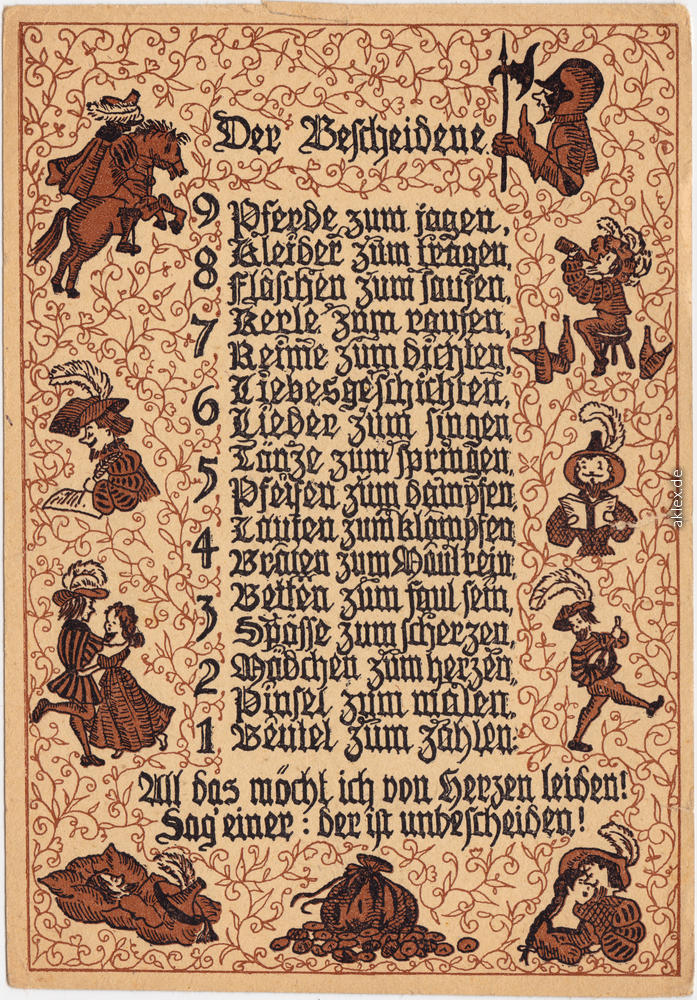 Der Bescheidene
9 Pferde zum jagen,
Kleider zum tragen,
8 Flaschen zum saufen,
7 Kerle zum raufen,
Reime zum dichten,
6 Liebesgeschichten,
Lieder zum singen
5 Tänze zum springen,
Pfeifen zum dampfen
4 Lauten zum klampfen
Braten zum Maul rein,
3 Betten zum faul sein,
Spässe zum scherzen,
2 Mädchen zum herzen,
Pinsel zum malen,
1 Beutel zum Zahlen:
All das möcht ich von Herzen leiden!
Sag' einer: der ist unbescheiden!
aklex.de